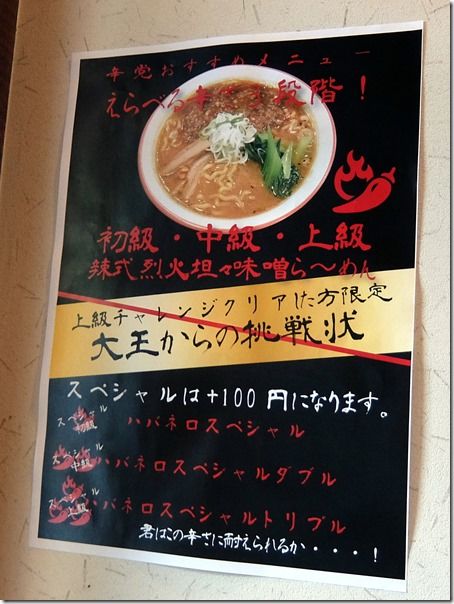 辛党おすすめメニュー
えらべる辛さ3段階！
初級・中級・上級
辣式烈火坦々味噌ら～めん
上級チャレンジクリアした方限定
大王からの挑戦状
スペシャルは+100円になります。
スペシャル初級 ハバネロスペシャル
スペシャル中級 ハバネロスペシャルダブル
スペシャル上級 ハバネロスペシャルトリプル
君はこの辛さに耐えられるか・・・！